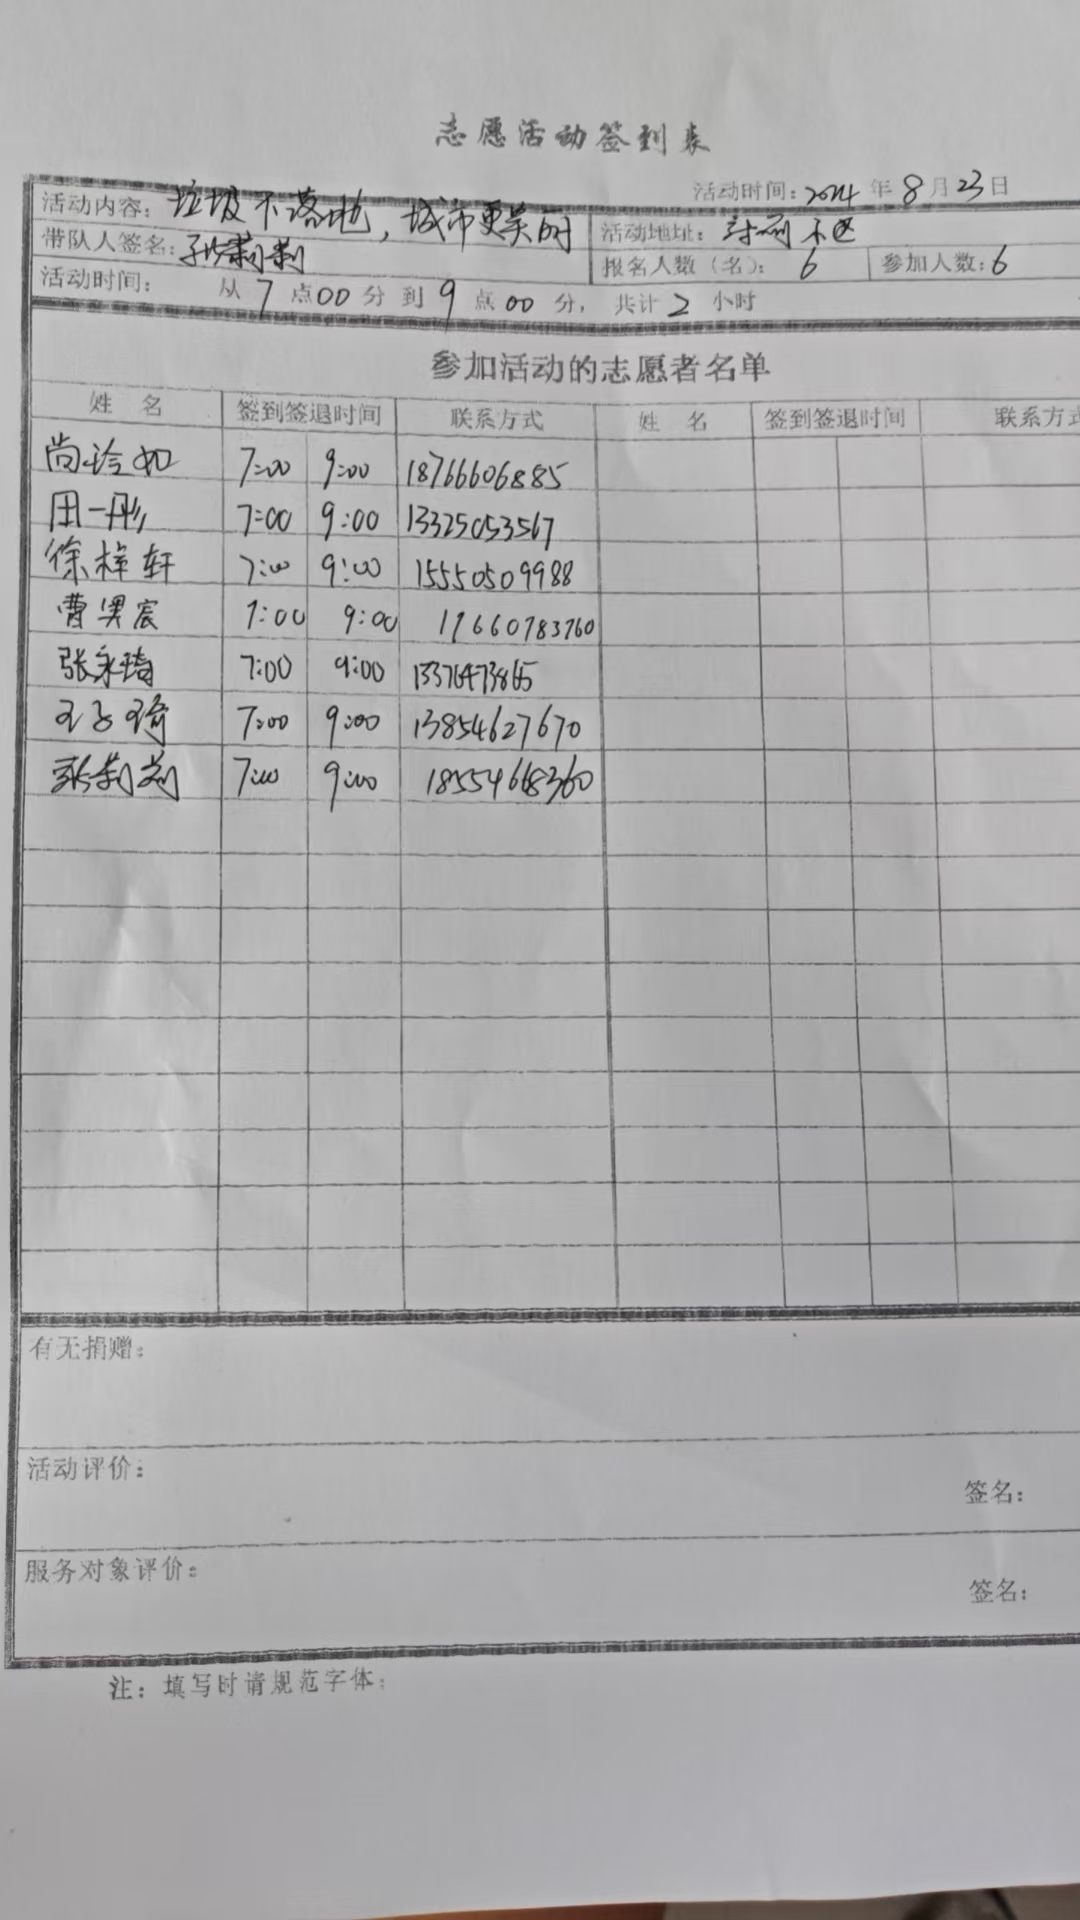 志愿活动签到表
活动时间：2024年8月23日
活动内容：垃圾不落地，城市更美丽 活动地址：
带队人签名：张莉莉 报名人数（名）：6 参加人数：6
活动时间： 从7点00分到9点00分，共计2小时
参加活动的志愿者名单
姓 名 签到签退时间 联系方式 姓 名 签到签退时间 联系方式
尚泠如 7:00 9:00 18766606885
田一彤 7:00 9:00 13325053567
徐梓轩 7:00 9:00 15550509988
曹奥宸 7:00 9:00 19660783760
张永琦 7:00 9:00 13376473865
王子琦 7:00 9:00 13854627670
张莉莉 7:00 9:00 18554668360
有无捐赠：
活动评价：
签名：
服务对象评价：
签名：
注：填写时请规范字体；